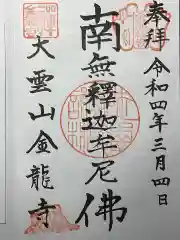 奉拝
令和四年三月四日
南無釋迦牟尼佛
大雲山金龍寺